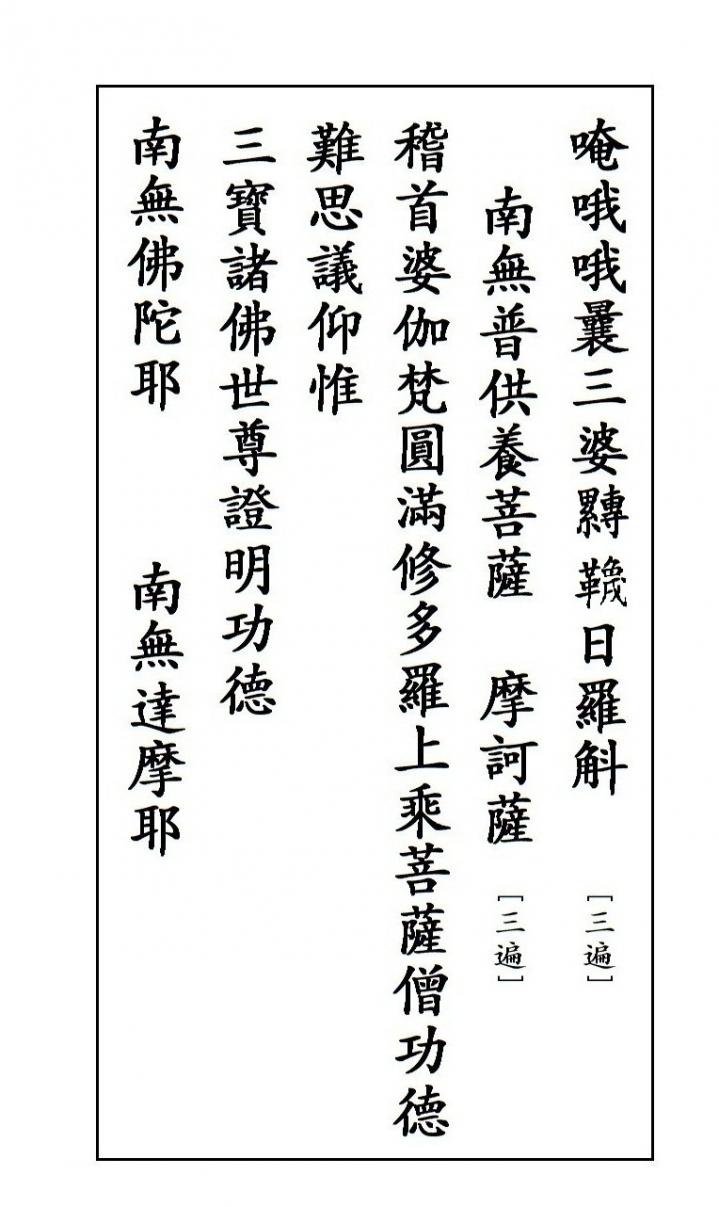 唵哦哦曩三婆嚩韈日羅斛 [三遍]
南無普供養菩薩 摩訶薩 [三遍]
稽首婆伽梵圓滿修多羅上乘菩薩僧功德
難思議仰惟
三寶諸佛世尊證明功德
南無佛陀耶 南無達摩耶